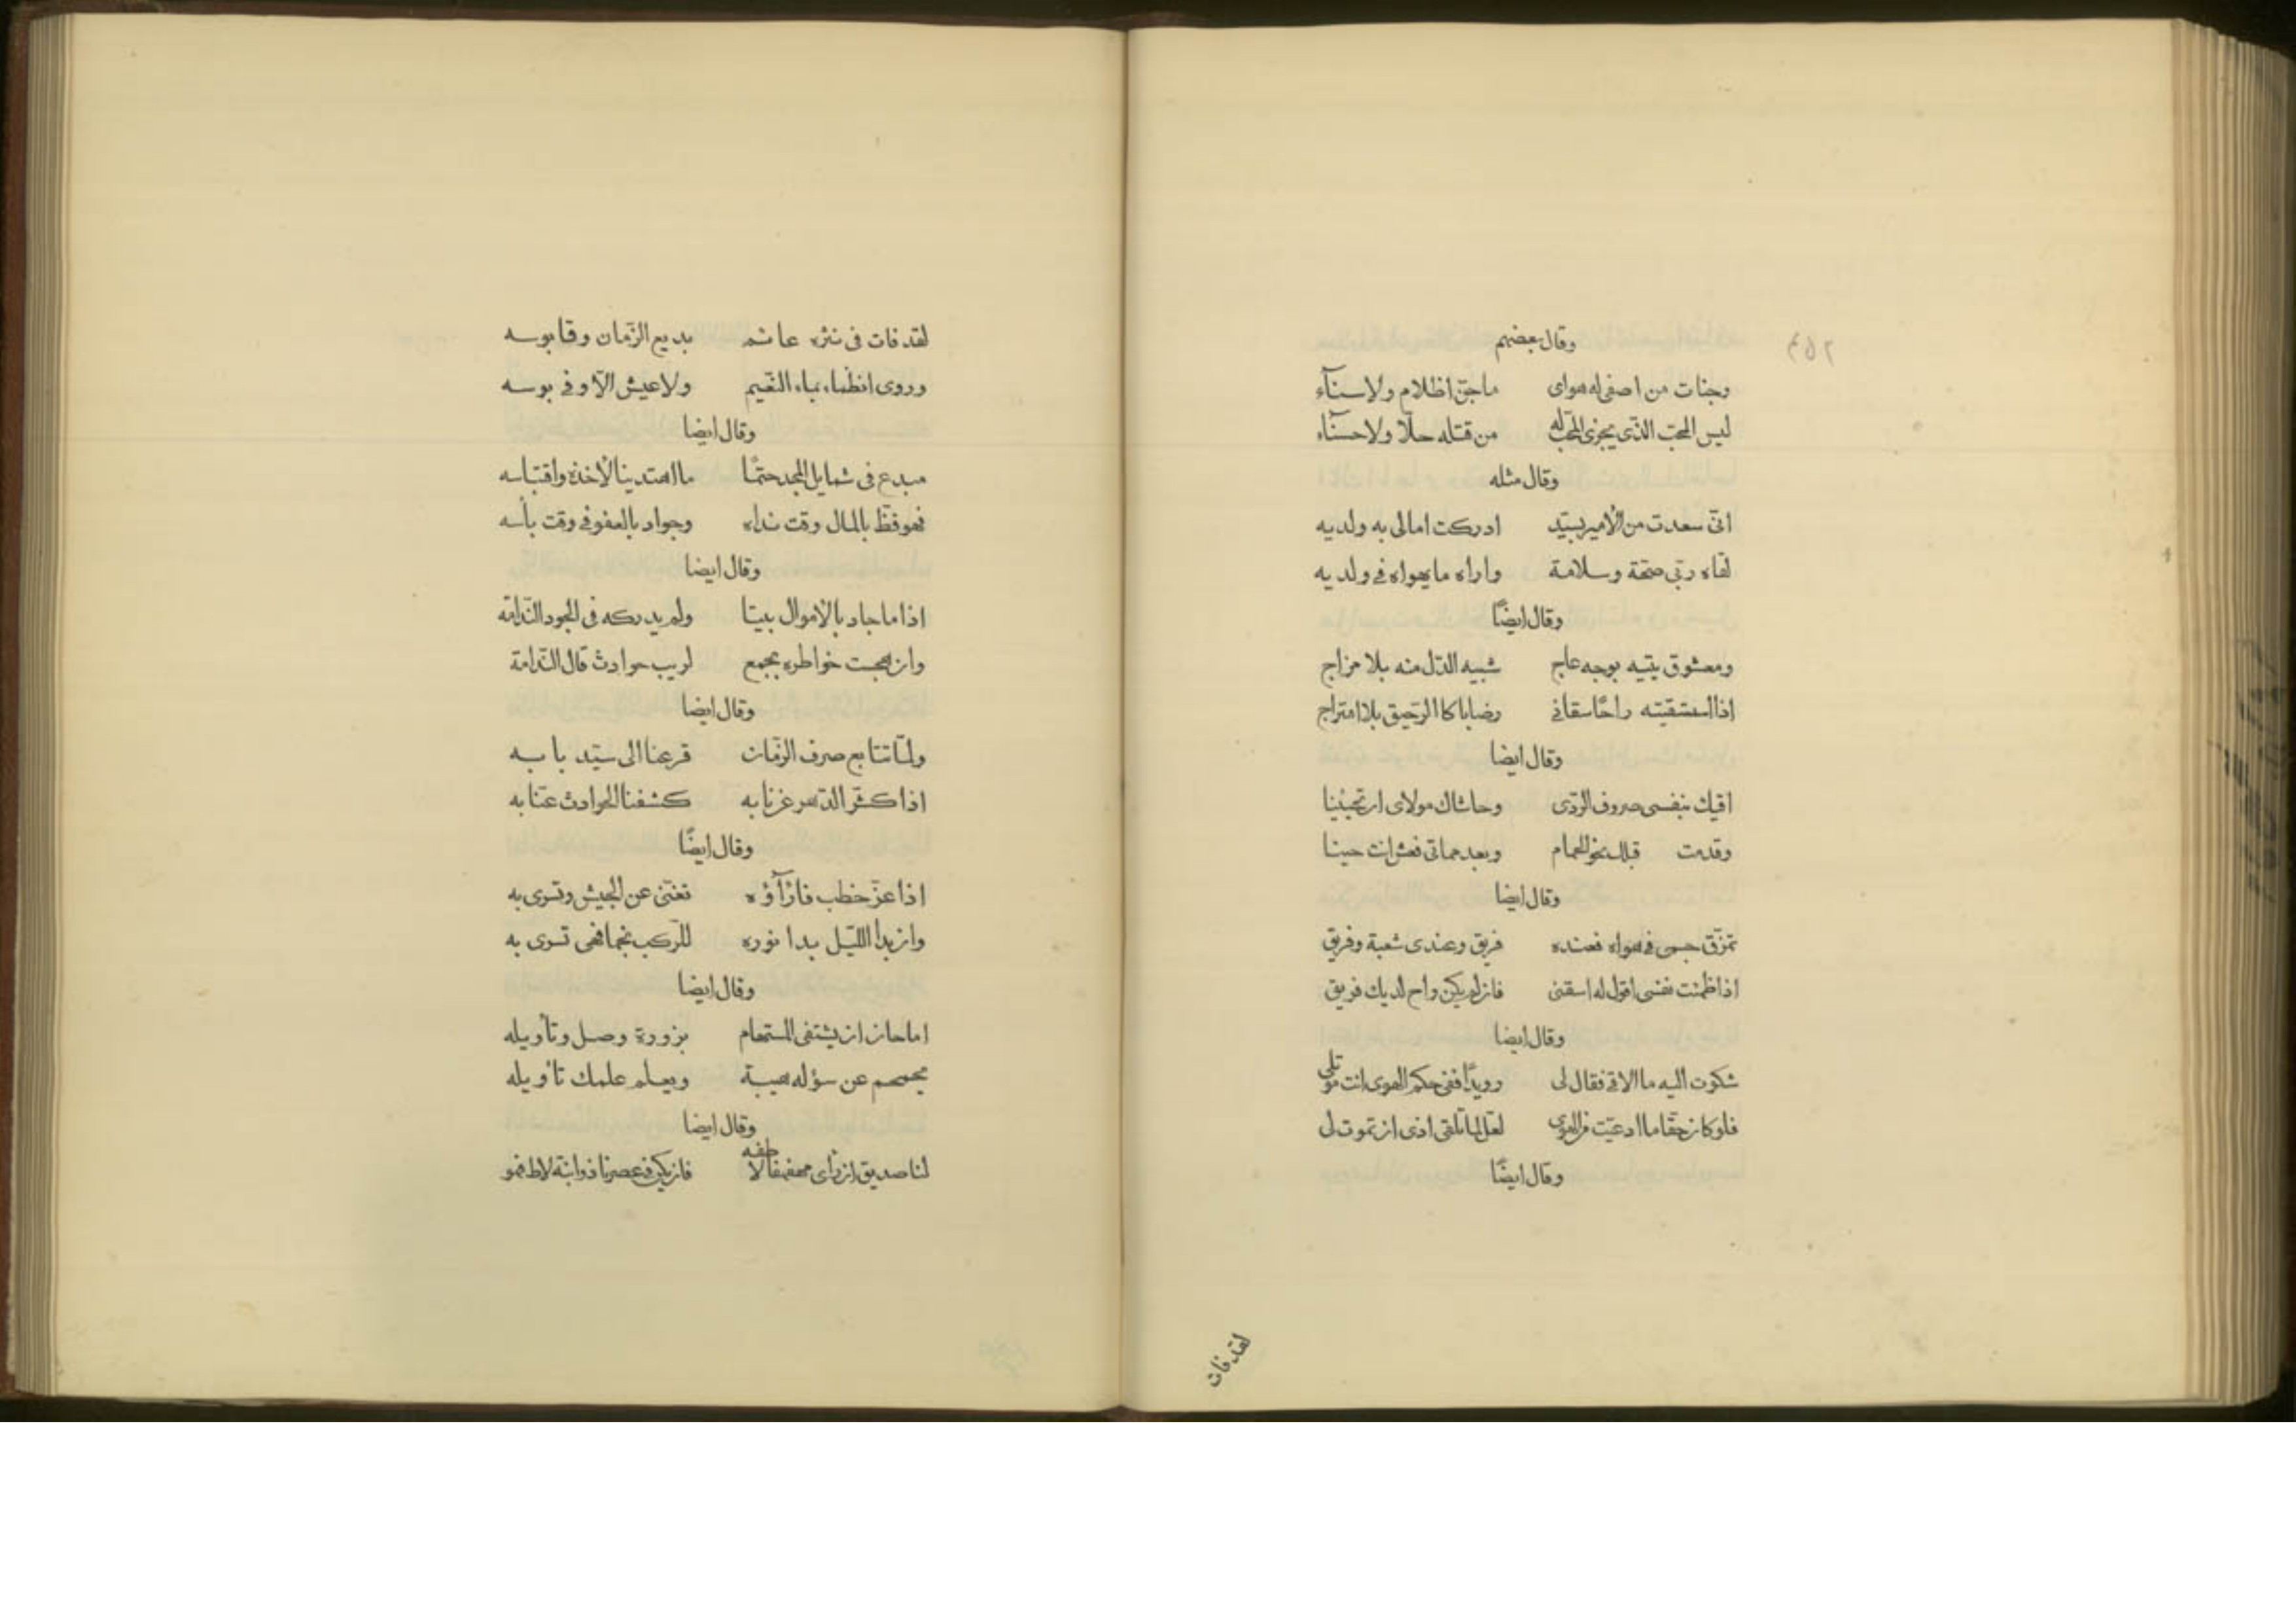 وقال بعضهم
وجنات من اصفى له هواى ماجن اظلام ولا سنآء
ليس المحبّ الذّى يجزى المحبّ له من قتله حلّا ولا حسنآء
وقال مثله
انّى سعدت من الأمير بسيّد ادركت امالى به ولديه
لقاه ربّى صحّة وسلامة واراه ما يهواه فى ولديه
وقال ايضًا
ومعشوق يتيه بوجه عاج شبيه الدّل منه بلا مزاج
اذا استسقيته راحًا سقانى رضابا كا الرّحيق بلا امتزاج
وقال ايضا
اقيك بنفسى صروف الرّدى وحاشاك مولاى ان تحينا
وقدمت قبلك نحو الحمام وبعد مماتى فعش انت حينا
وقال ايضا
تمزّق جسمى فى هواه فعنده فريق وعندى شعبة وفريق
اذا ظمئت نفسى اقول له اسقنى فان لم يكن راح لديك فريق
وقال ايضا
شكوت اليه ما الاقى فقال لى رويدًا ففى حكم الهوى انت موتلى
فلو كان حقّا ما ادعيت من الهوى لقل لما تلقى اذى ان تموت لى
وقال ايضًا
لقد فات
لقد فات فى نثره عائه بديع الزّمان وقابوسه
وروى الظماء بماء النّعيم ولا عيش الّا وفى بوسه
وقال ايضا
مبدع فى شمايل المجد حتمًا ما اهتدينا لأخذه واقتباسه
فهو فظّ بالمال وقت نداه وجواد بالعفو فى وقت بأسه
وقال ايضا
اذا ما جاد بالأموال بيتا ولم يدركه فى الجود النّدامة
وان هجست خواطره بجمع لريب حوادث قال النّدامة
وقال ايضا
ولمّا تتابع صرف الزّمان فزعنا الى سيّد بابه
اذا كشّر الدّهر عن نابه كشفنا الحوادث عنّا به
وقال ايضًا
اذا عزّ خطب فاراؤه تغنّى عن الجيش وتسرى به
وان بدا اللّيل بدا نوره للرّكب نجما فهى تسرى به
وقال ايضا
اما حان ان يشتفى المستهام بزورة وصل وتأويله
يجمجم عن سؤله هيبة ويعلم علمك تأويله
وقال ايضا
لنا صديق ان رأى مهفهفا لاطفه فان يكن فى عصرنا ذو ابنة لاط فهو